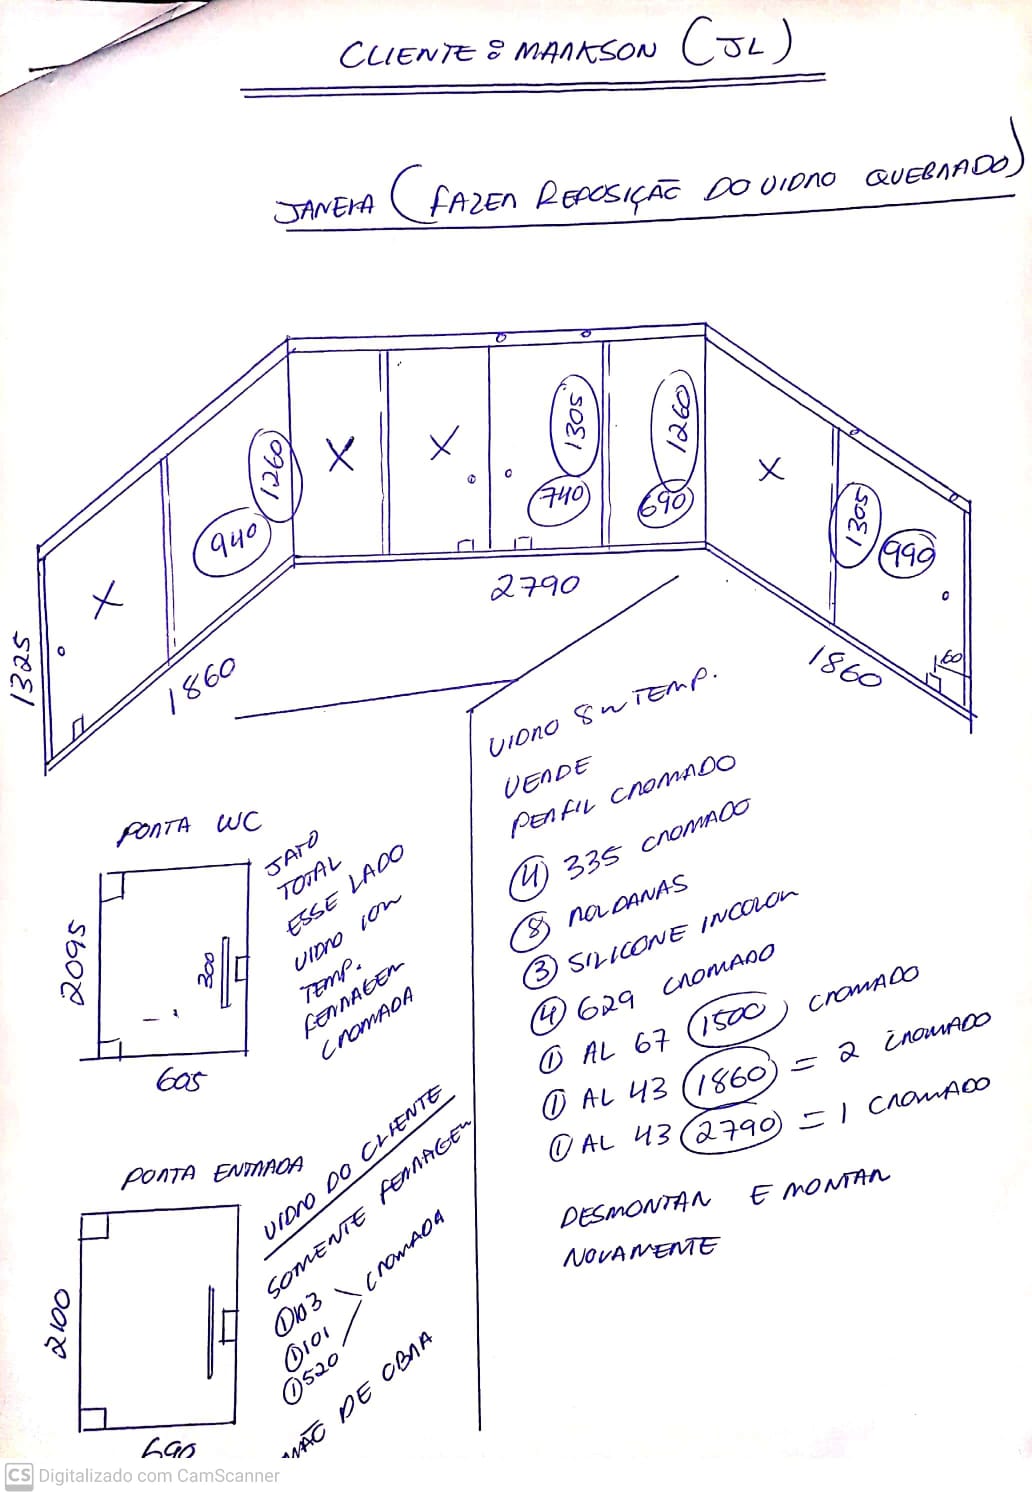 CLIENTE : MARKSON (JL)
JANELA (FAZER REPOSIÇÃO DO VIDRO QUEBRADO)
X
940
1260
X
X
1305
740
1260
690
X
1305
990
60
1325
1860
2790
1860
PORTA WC
2095
300
605
JATO
TOTAL
ESSE LADO
VIDRO 10M
TEMP.
FERRAGEM
CROMADA
PORTA ENTRADA
2100
690
VIDRO DO CLIENTE
SOMENTE FERRAGEM
① 103
① 101
① 520
CROMADA
MÃO DE OBRA
VIDRO 8M TEMP.
VERDE
PERFIL CROMADO
④ 335 CROMADO
⑧ ROLDANAS
③ SILICONE INCOLOR
④ 629 CROMADO
① AL 67 (1500) CROMADO
① AL 43 (1860) = 2 CROMADO
① AL 43 (2790) = 1 CROMADO
DESMONTAR E MONTAR
NOVAMENTE
CS Digitalizado com CamScanner